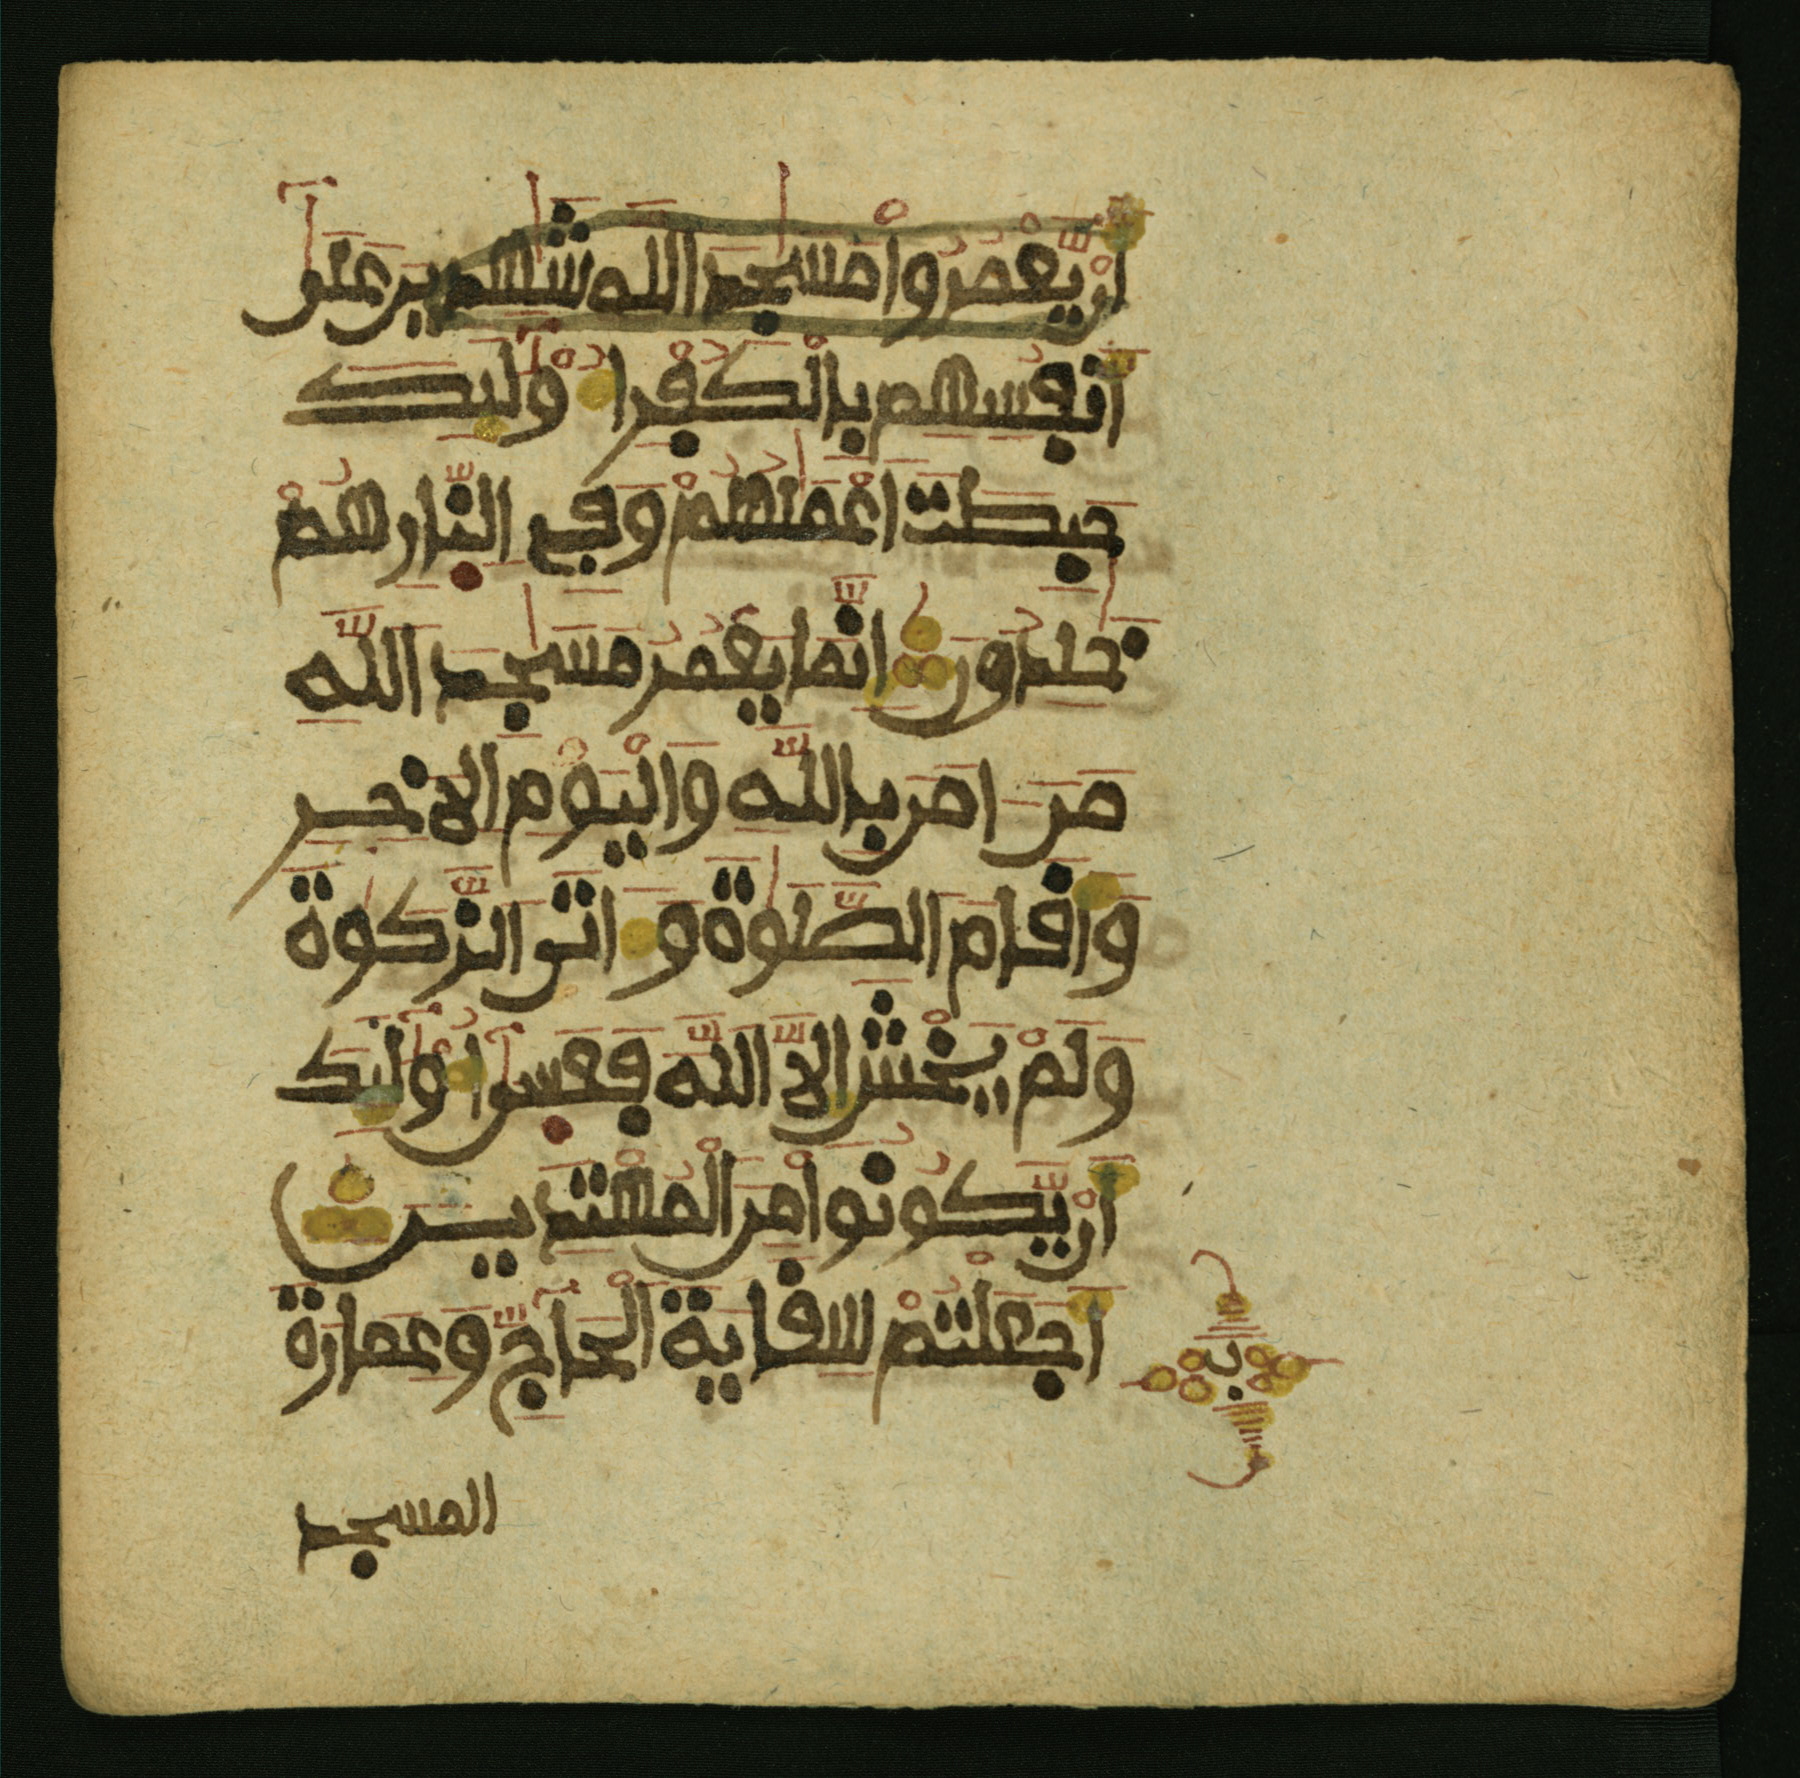 أَنْ يَّعْمُرُوا مَسٰجِدَ اللهِ شٰهِدِينَ عَلٰىٓ
أَنفُسِهِم بِالْكُفْرِ أُوْلَٰٓئِكَ
حَبِطَتَ اَعْمَٰلُهُمْ وَفِي النّارِ هُمْ
خَٰلِدُونَ اِنَّمَا يَعْمُرُ مَسَٰجِدَ اللَّهِ
مَنَ اٰمَنَ بِاللَّهِ وَالْيَوْمِ الاٰخِرِ
وَأَقَامَ الصَّلَوٰةَ وَءَاتَى الزَّكَوٰةَ
وَلَمْ يَخْشَ إِلاَّ اللَّهَ فَعَسَىٰٓ أُوْلَٰٓئِكَ
أَنْ يَّكُونُوا مِنَ الْمُهْتَدِينَ
أَجَعَلْتُمْ سِقَايَةَ الْحَآجِّ وَعِمَارَةَ
ب
المسجد